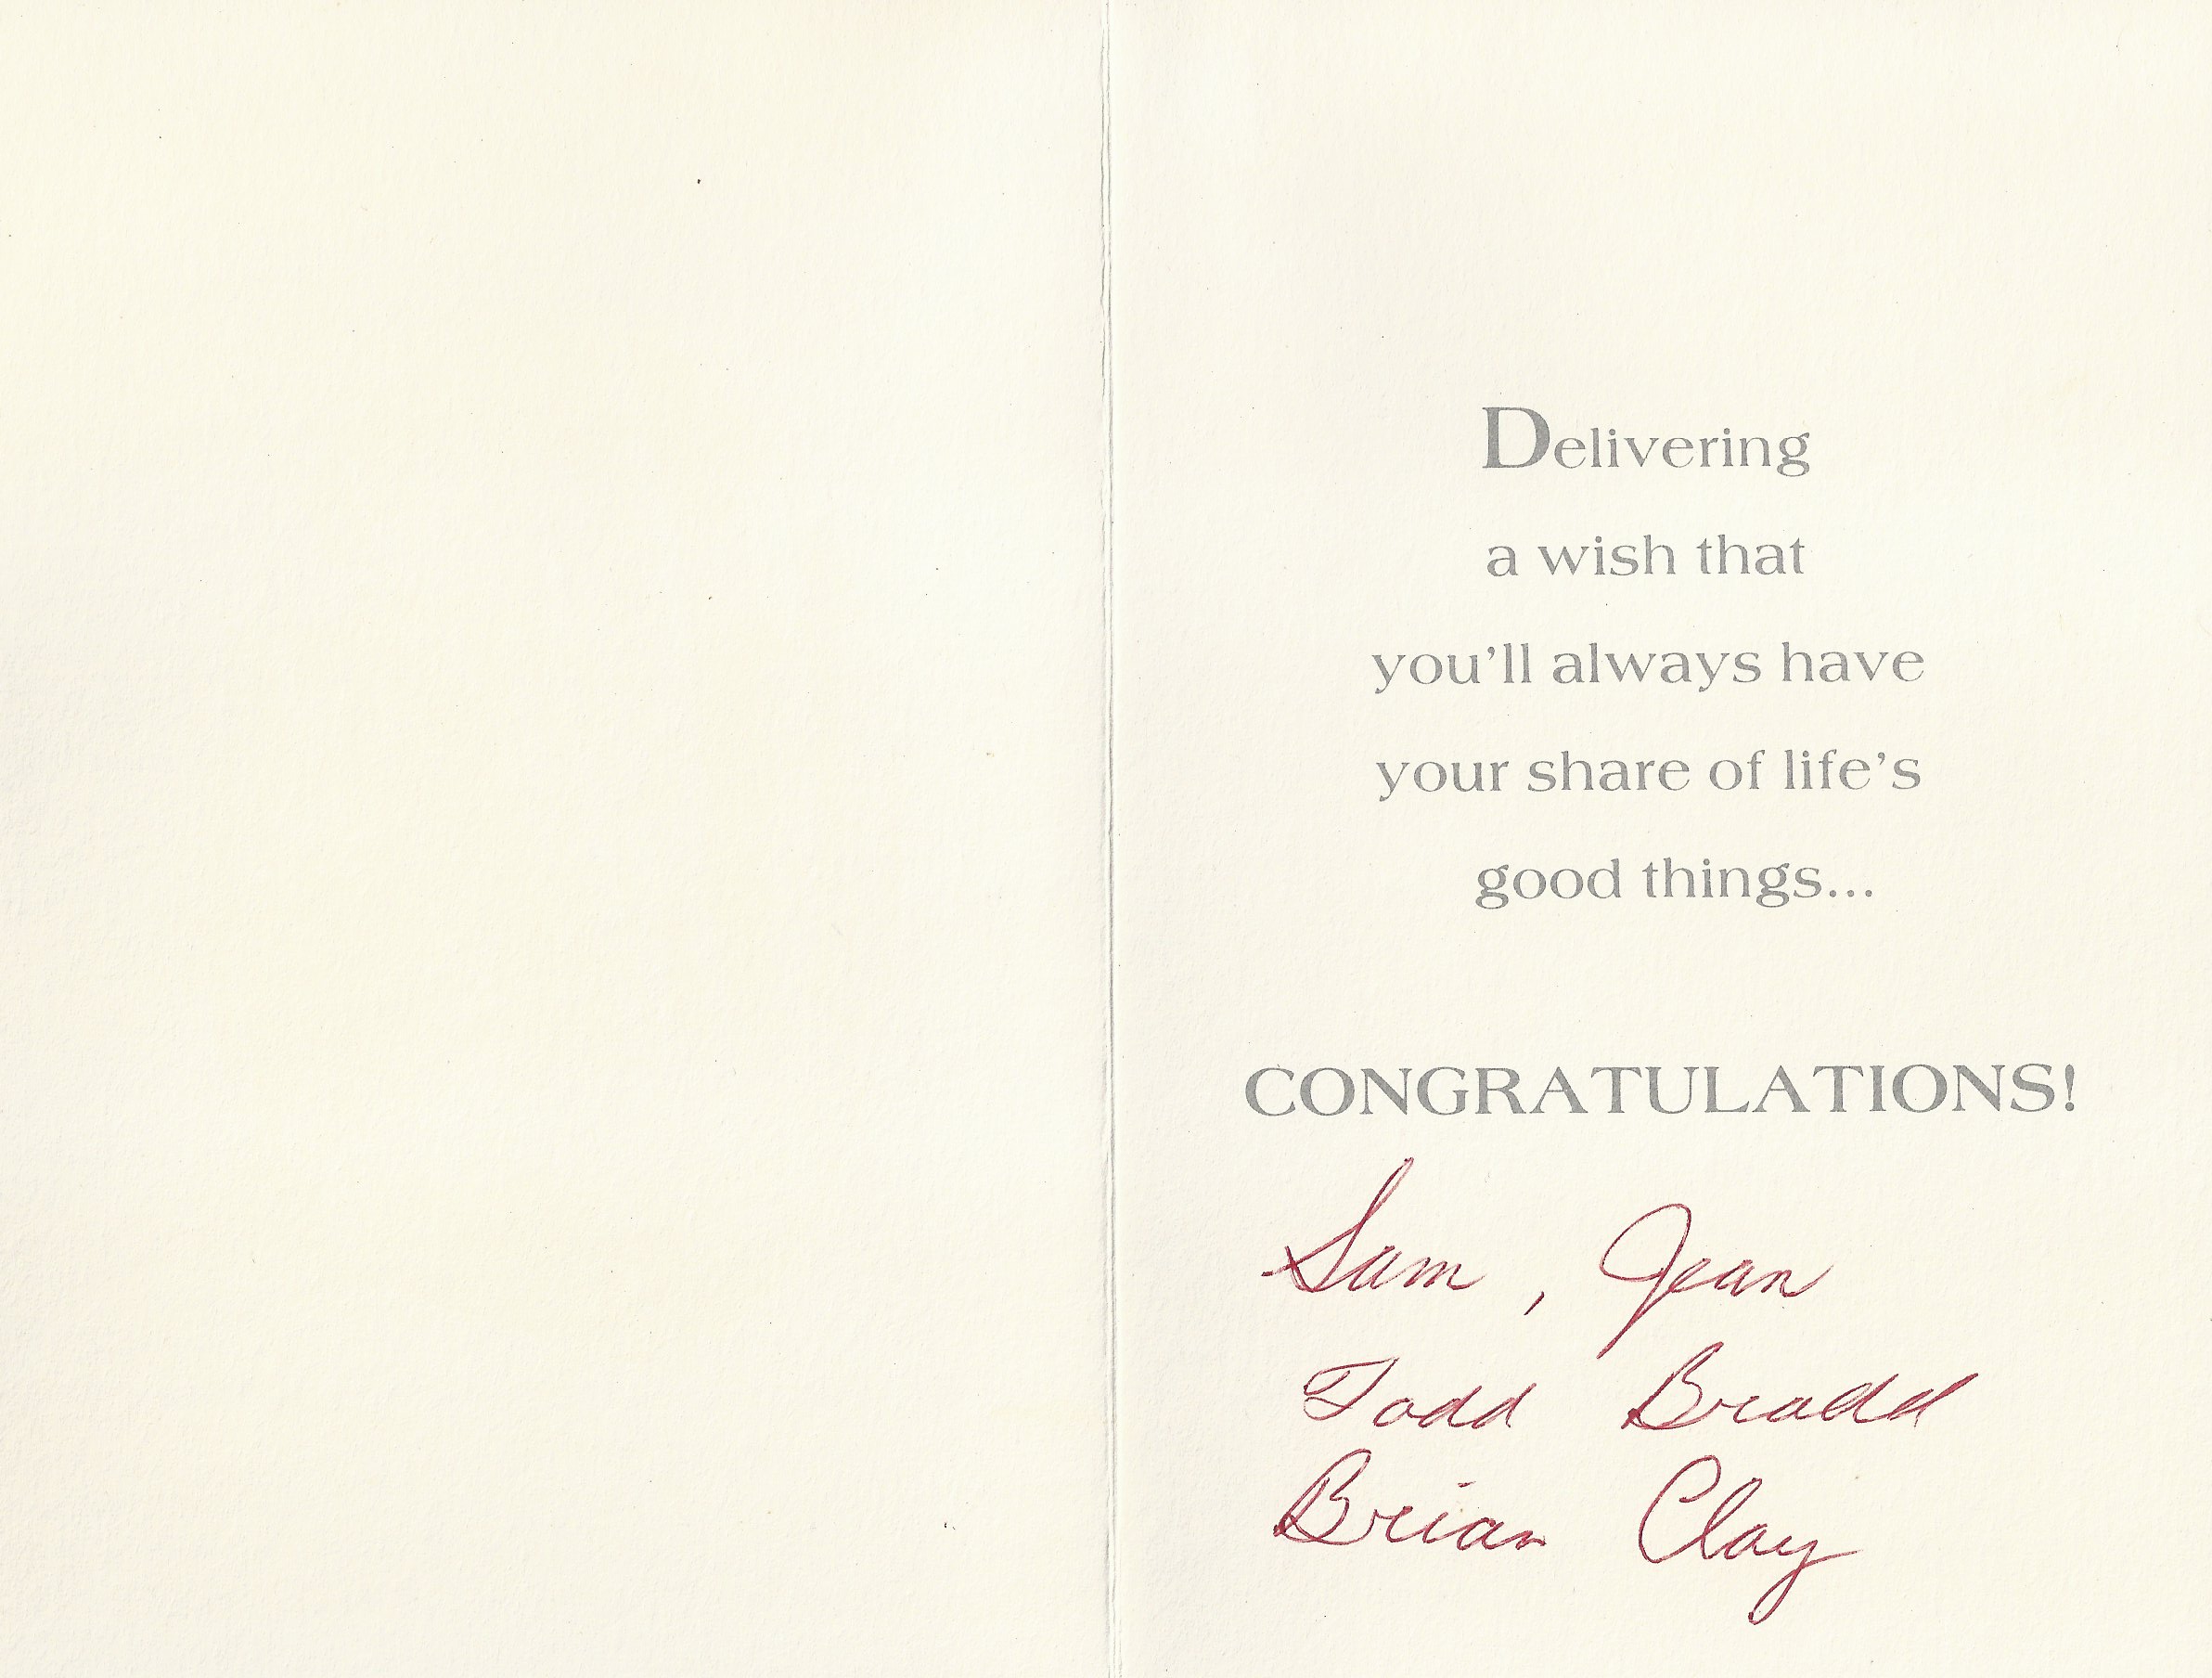 Delivering
a wish that
you'll always have
your share of life's
good things...
CONGRATULATIONS!
Sam, Jean
Todd Bradd
Brian Clay